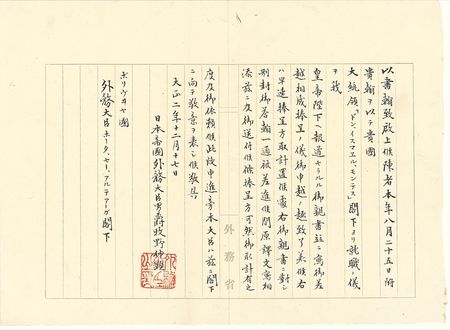 以書翰致啟上候陳者本年八月二十五日附
貴翰ヲ以テ貴國
大統領「ドン、イスマエル、モンテス」閣下ヨリ就職ノ儀
ヲ我
皇帝陛下ヘ報道セラルル御親書並ニ寫御差
越相成捧呈ノ儀御申越ノ趣致了美候右
ハ早速捧呈方取計置候處右御親書ニ對シ
別封御答翰一通被差進候間原譯文寫相
添茲ニ及御送付候條捧呈方可然御取計有之
度及御依賴候此段申進旁本大臣ハ茲ニ閣下
ニ向テ敬意ヲ表シ候敬具
大正二年十二月十七日
日本帝國外務大臣男爵牧野伸顯
ボリヴィヤ國
外務大臣
閣下
外務省